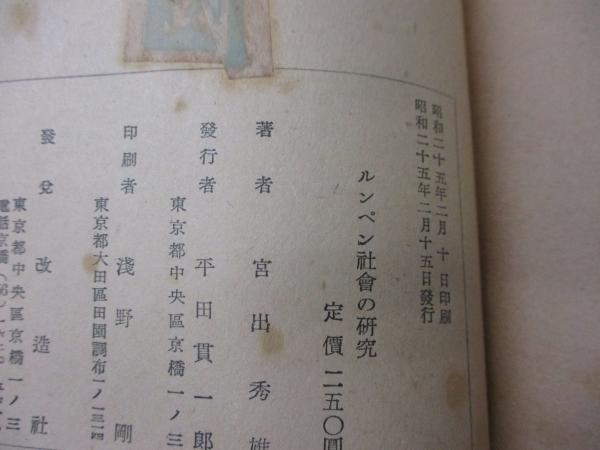 昭和二十五年二月 十 日印刷
昭和二十五年二月十五日發行
ルンペン社會の研究
定價 二五〇圓
著者 宮出秀雄
發行者 平田貫一郎
東京都中央區京橋一ノ三
印刷者 淺野剛
東京都大田區田園調布一ノ三四
發兌 改造社
東京都中央區京橋一ノ三
電話京橋